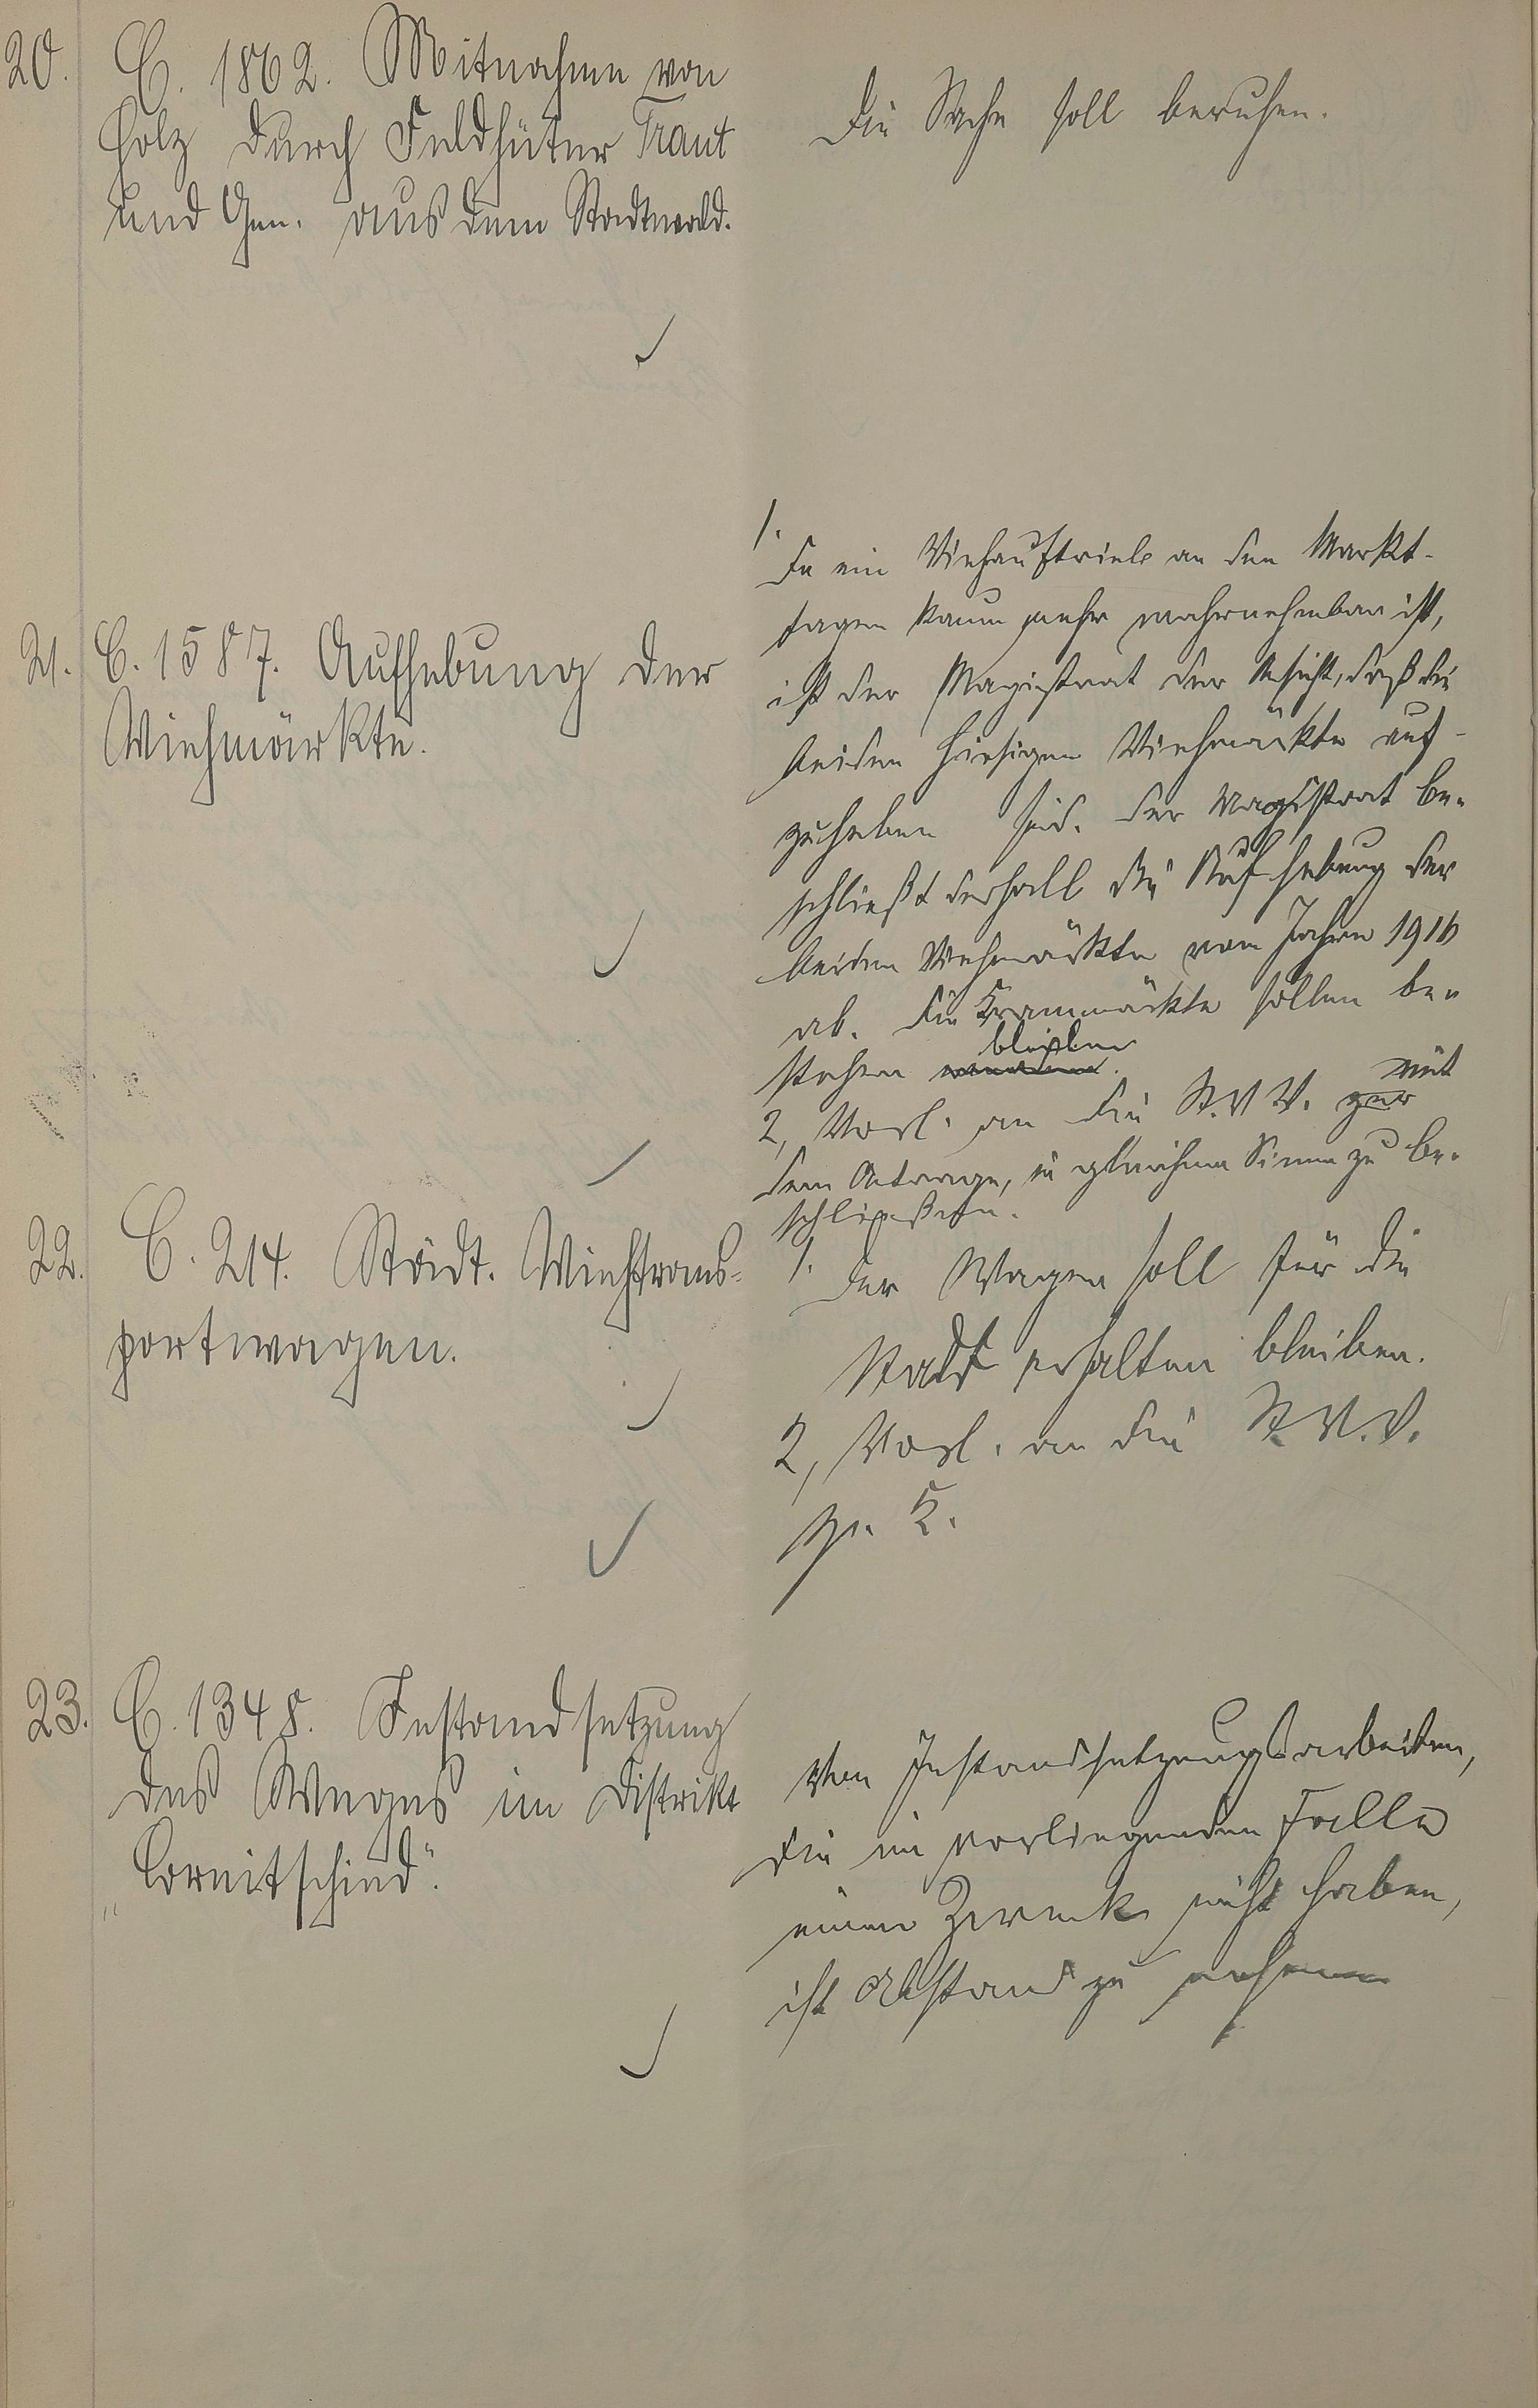 20. C. 1862. Mitnahme von
Holz durch Feldhüter Traut
und Gen. aus dem Stadtwald.
Die Sache soll beruhen.
21. C. 1587. Aufhebung der
Viehmärkte.
1.
Da ein Viehauftrieb an den Markt-
tagen kaum mehr wahrnehmbar ist,
ist der Magistrat der Ansicht, daß die
beiden hiesigen Viehmärkte auf-
zuheben sind. Der Magistrat be-
schließt deshalb die Aufhebung der
beiden Viehmärkte vom Jahre 1916
ab. Die Krammärkte sollen be-
stehen bleiben.
2, Vorl. an die St.V.V. zur mit
dem Antrage, in gleichem Sinne zu be-
schließen.
22. C. 214. Städt. Viehtrans-
portwagen.
1. Der Wagen soll für die
Stadt erhalten bleiben.
2, Vorl. an die St.V.V.
z. K.
23. C. 1348. Instandsetzung
des Weges im Distrikt
"Cornitschied".
Von Instandsetzungsarbeiten,
die im vorliegenden Falle
einen Zweck nicht haben,
ist Abstand zu nehmen